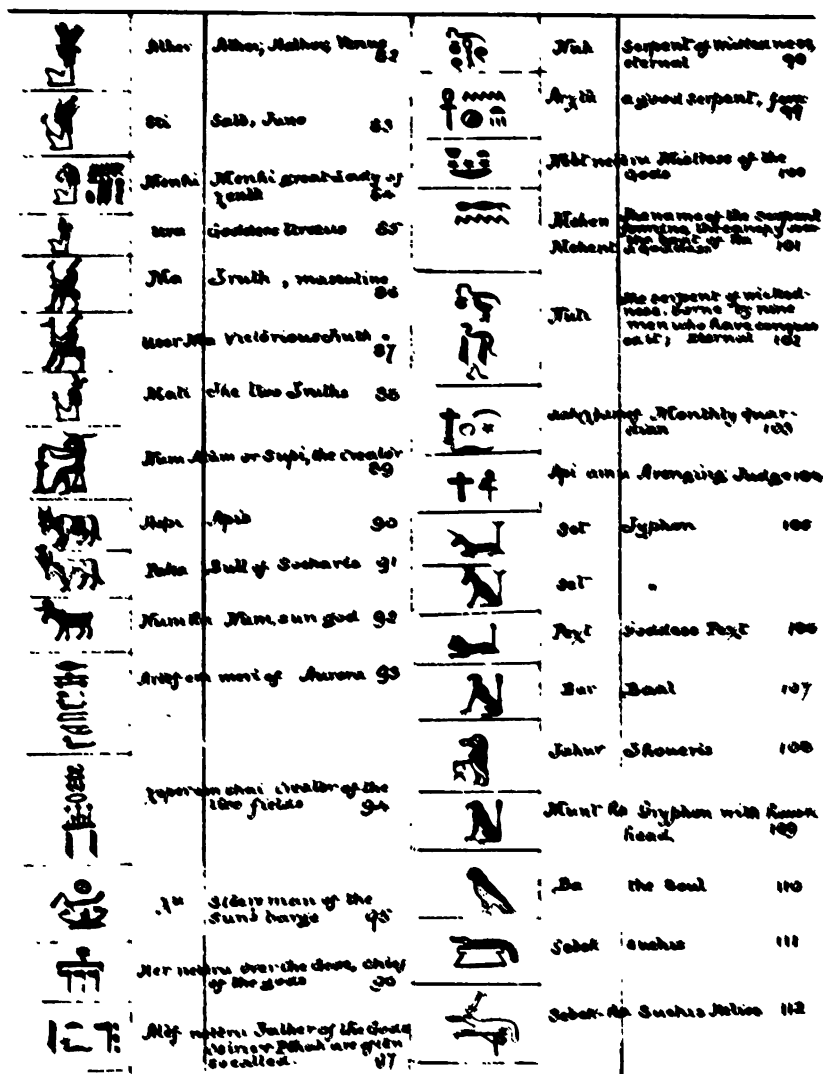 Ather Athor, Hathor, Venus
82
Sti Sati, Juno 83
Menhi Menhi great Lady of
84
Ura Goddess Uraeus 85
Ma Truth, masculine
86
User Ma Victorious Truth
87
Mati The two Truths 88
Num Num or Supi, the creator
89
Hapi Apis 90
Paka Bull of Socharis 91
Num Ra Num, sun god 92
meri of Aurora 93
creator of the
two fields 94
Steersman of the
Sun's barge 95
Her neteru over the Gods, Chief
of the gods 96
Atef neteru Father of the Gods
are often
so called. 97
Nuk Serpent of wickedness,
eternal 98
a good serpent, 
99
Nebt neteru Mistress of the
Gods 100
Mehen The name of the serpent
forming the canopy over
the boat of Ra
Mehent a goddess 101
Nuti the serpent of wicked-
ness, borne by nine
men who have conquer-
ed it; eternal 102
Monthly guar-
dian 103
Api Avenging Judge 104
Set Typhon 105
Set "
Pext Goddess Pext 106
Bar Baal 107
Tahur Thoueris 108
Munt Ra Gryphon with hawk
head 109
Ba the Soul 110
Sebek Suchus 111
Sebek-Ra Suchus Helios 112